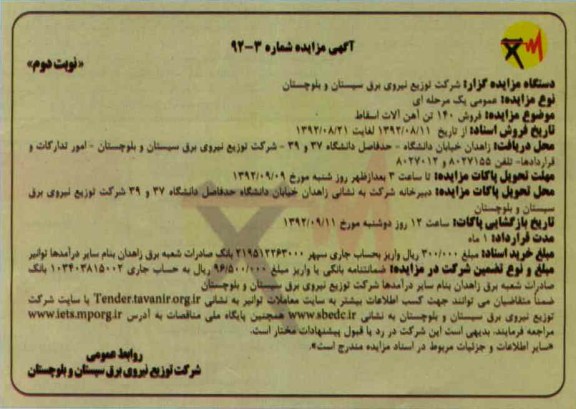 آگهی مزایده شماره ۳-۹۲
«نوبت دوم»
دستگاه مزایده گزار: شرکت توزیع نیروی برق سیستان و بلوچستان
نوع مزایده: عمومی یک مرحله ای
موضوع مزایده: فروش ۱۴۰ تن آهن آلات اسقاط
تاریخ فروش اسناد: از تاریخ ۱۳۹۲/۰۸/۱۱ لغایت ۱۳۹۲/۰۸/۲۱
محل دریافت: زاهدان خیابان دانشگاه - حدفاصل دانشگاه ۳۷ و ۳۹ - شرکت توزیع نیروی برق سیستان و بلوچستان - امور تدارکات و
قراردادها- تلفن ۸۰۲۷۱۵۵ و ۸۰۲۷۰۱۲
مهلت تحویل پاکات مزایده: تا ساعت ۳ بعدازظهر روز شنبه مورخ ۱۳۹۲/۰۹/۰۹
محل تحویل پاکات مزایده: دبیرخانه شرکت به نشانی زاهدان خیابان دانشگاه حدفاصل دانشگاه ۳۷ و ۳۹ شرکت توزیع نیروی برق
سیستان و بلوچستان
تاریخ بازگشایی پاکات: ساعت ۱۲ روز دوشنبه مورخ ۱۳۹۲/۰۹/۱۱
مدت قرارداد: ۱ ماه
مبلغ خرید اسناد: مبلغ ۳۰۰/۰۰۰ ریال واریز بحساب جاری سپهر ۲۱۹۵۱۲۲۶۳۰۰۰ بانک صادرات شعبه برق زاهدان بنام سایر درآمدها توانیر
مبلغ و نوع تضمین شرکت در مزایده: ضمانتنامه بانکی یا واریز مبلغ ۹۶/۵۰۰/۰۰۰ ریال به حساب جاری ۱۰۳۴۰۳۸۱۵۰۰۲ بانک
صادرات شعبه برق زاهدان بنام سایر درآمدها شرکت توزیع نیروی برق سیستان و بلوچستان
ضمناً متقاضیان می توانند جهت کسب اطلاعات بیشتر به سایت معاملات توانیر به نشانی Tender.tavanir.org.ir یا سایت شرکت
توزیع نیروی برق سیستان و بلوچستان به نشانی www.sbedc.ir همچنین پایگاه ملی مناقصات به آدرس www.iets.mporg.ir
مراجعه فرمایند. بدیهی است این شرکت در رد یا قبول پیشنهادات مختار است.
«سایر اطلاعات و جزئیات مربوط در اسناد مزایده مندرج است».
روابط عمومی
شرکت توزیع نیروی برق سیستان و بلوچستان